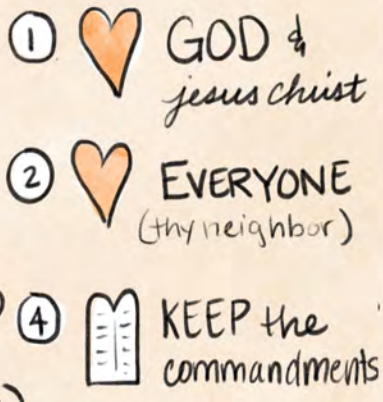 1 GOD &
jesus christ
2 EVERYONE
(thy neighbor)
4 KEEP the
commandments